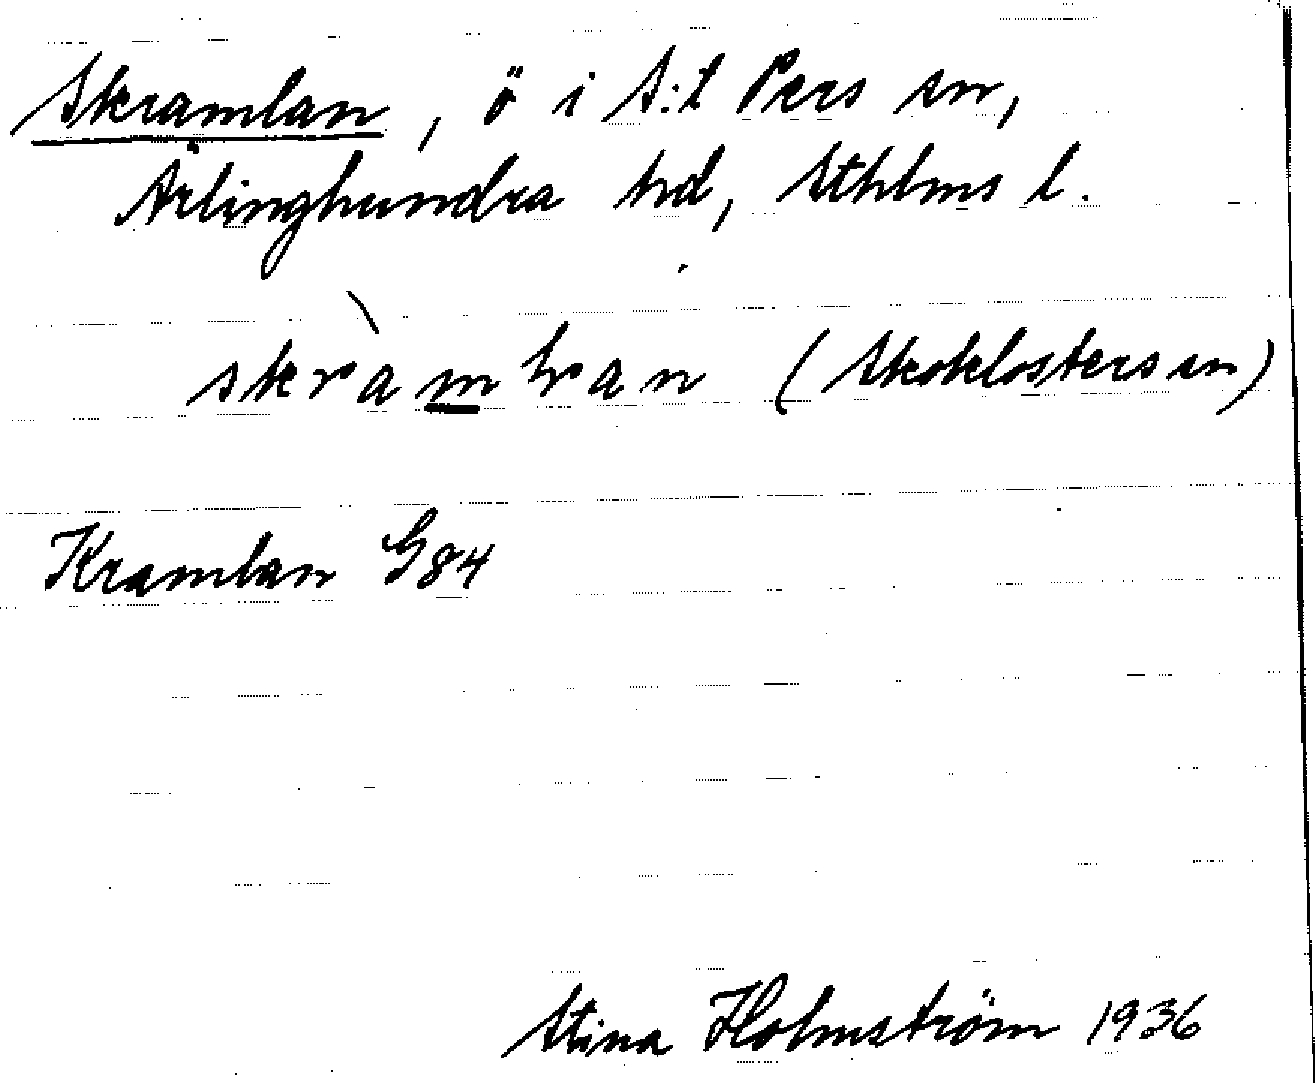 Skramlan, ö i S:t Pers sn,
Ärlinghundra hd, Sthlms l.
skràmlran (Skoklosters sn)
Kramlan G84
Stina Holmström 1936